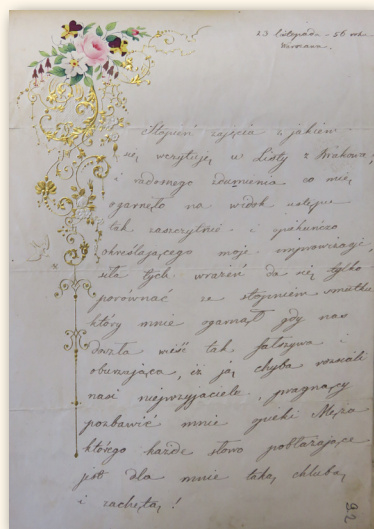 23 listopada - 56 roku
Warszawa.
Stopień zajęcia z jakiem
się wczytuję w Listy z Krakowa,
i radosnego zdumienia co mię
ogarnęło na widok ustępu
tak zaszczytnie i opiekuńczo
określającego moje improwizacje,
siła tych wrażeń da się tylko
porównać ze stopniem smutku
który mnie ogarnął gdy nas
doszła wieść tak fałszywa i
oburzająca, iż ją chyba rozsiali
nasi nieprzyjaciele, pragnący
pozbawić mnie opieki Męża
którego każde słowo pobłażające
jest dla mnie taką chlubą
i zachętą!
92